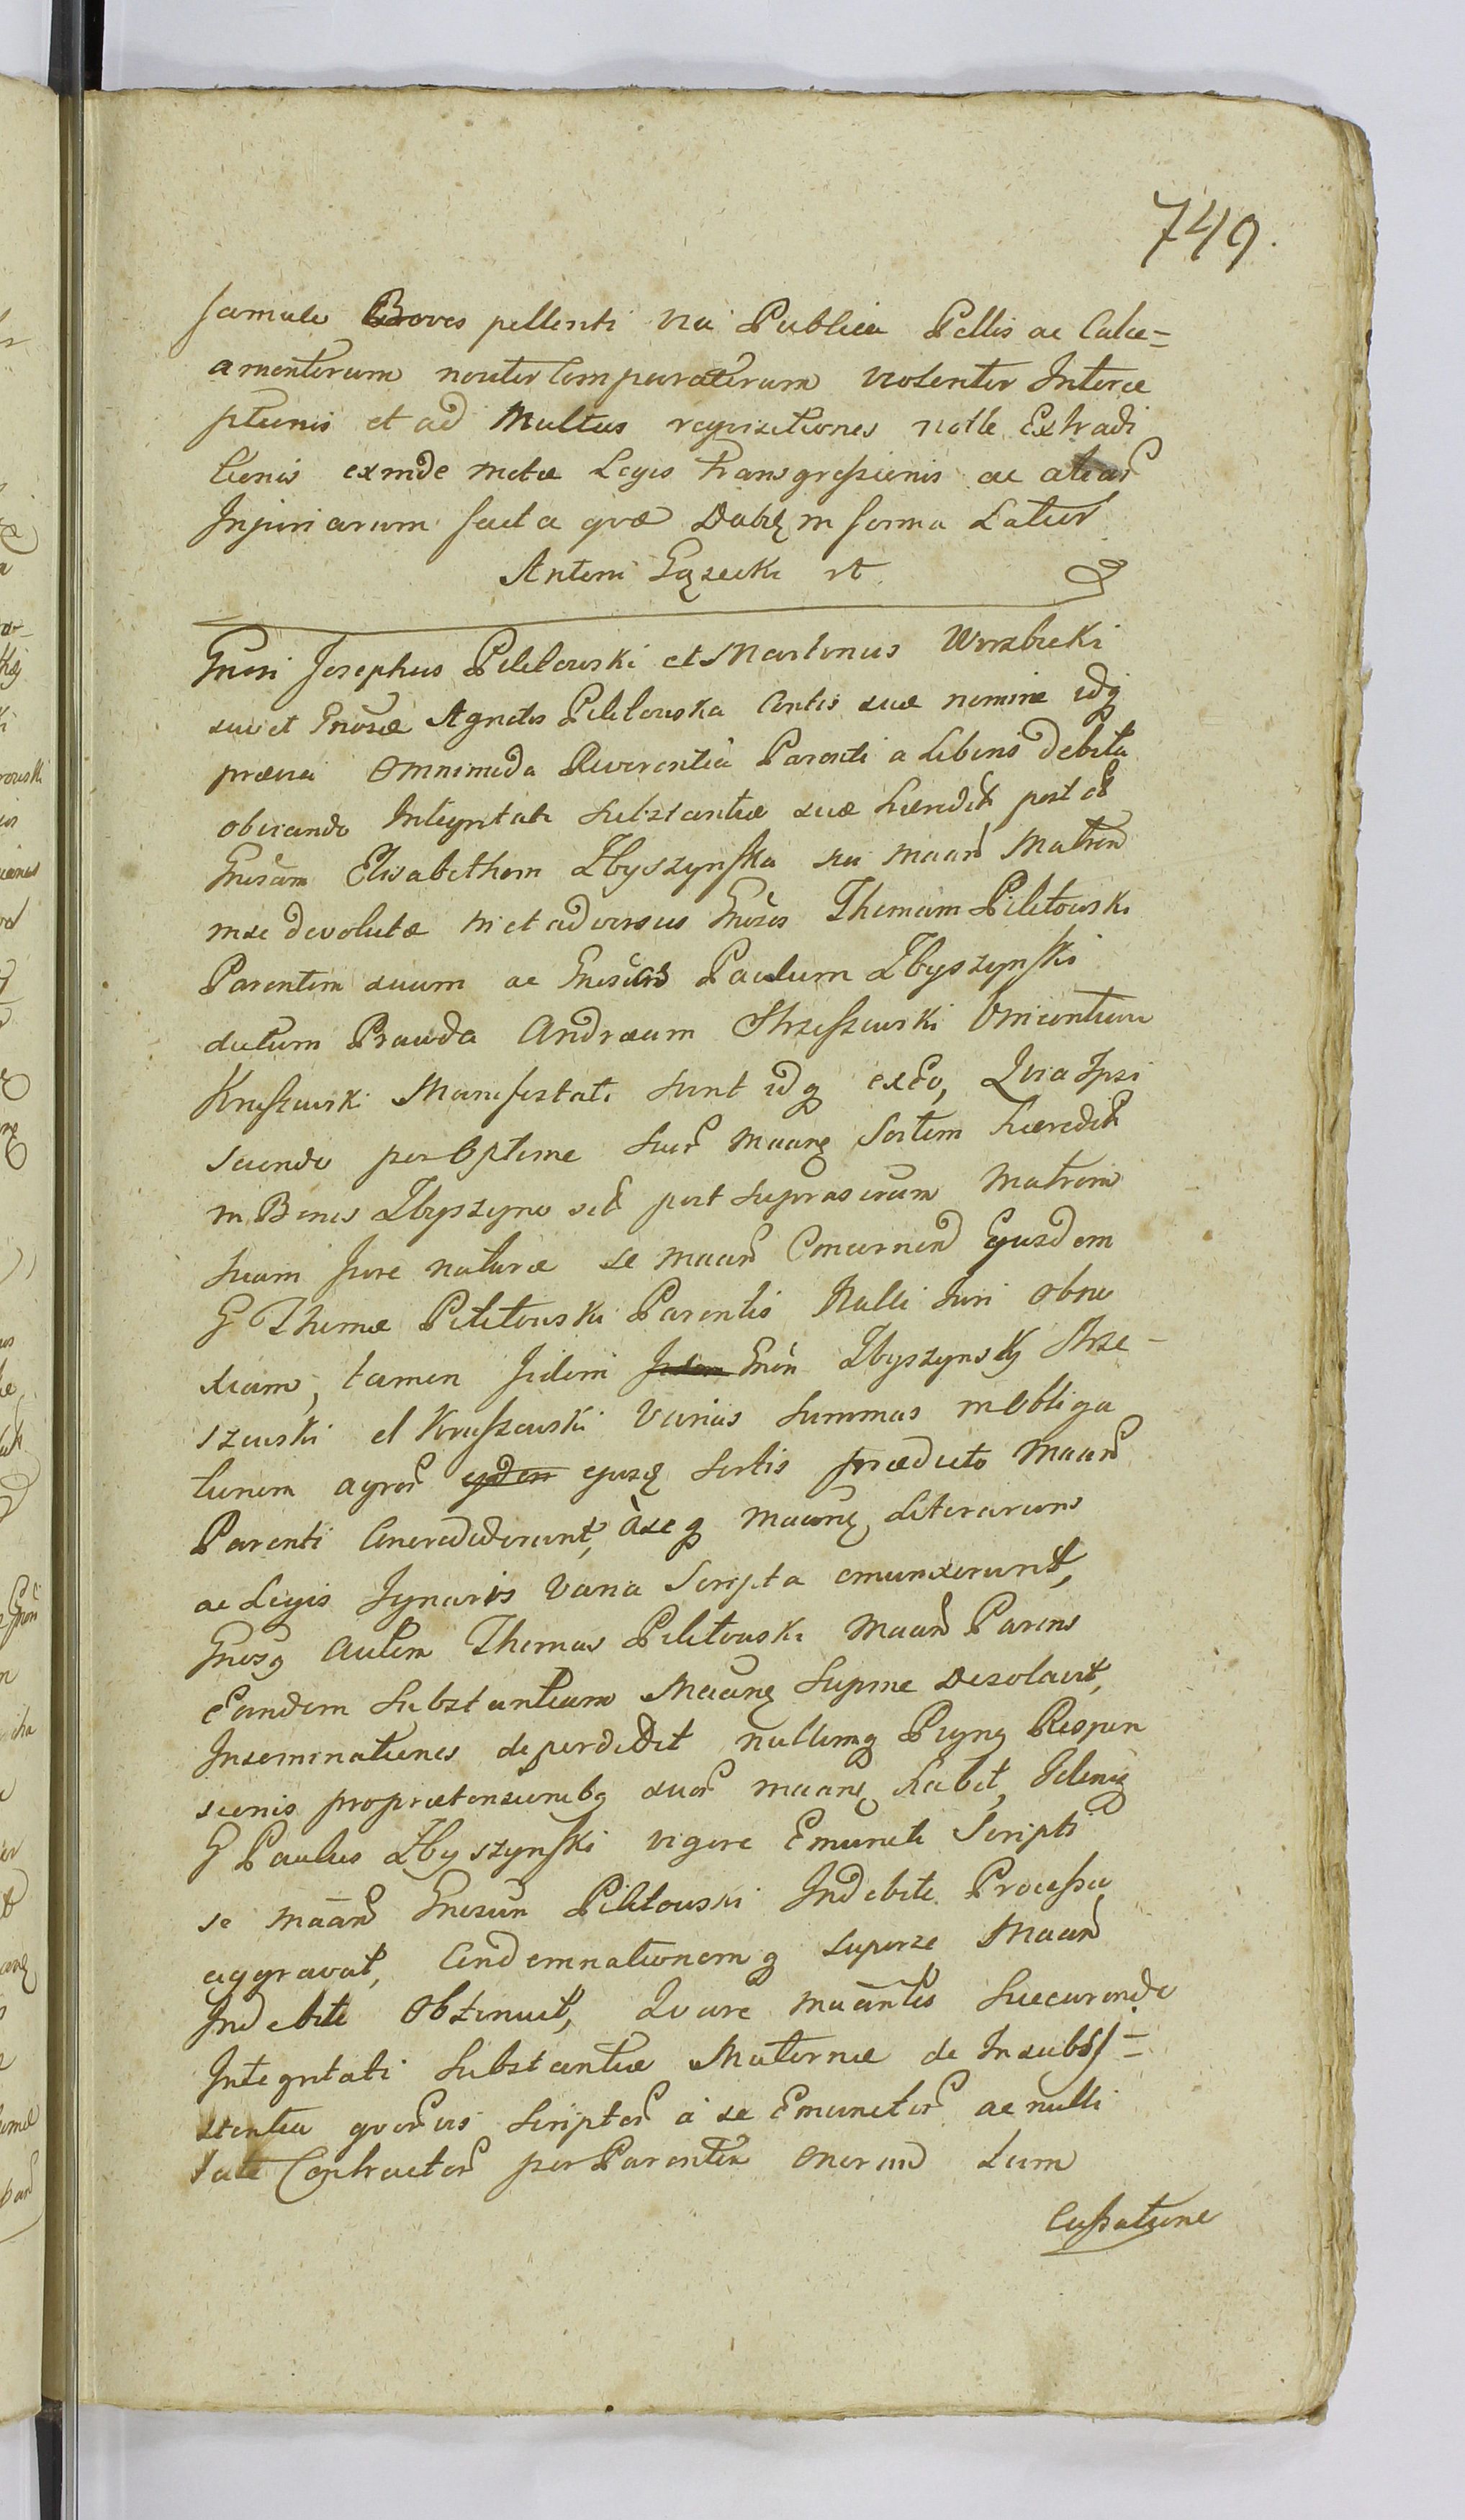 749.
famulo Boves pellenti via Publica Pellis ac Calce=
amentorum noviter Comparatorum violenter Interce
ptionis et ad Multas requisitiones nolle Extradi
tionis exinde motæ Legis Transgressionis ac aliar
Injuriarum facta qvæ Dabq in forma Latior
Antoni Gązecki
Gnosi Josephus Piletowski et Martinus Wierzbicki
suo et Gnosæ Agnetis Piletouska Contis suæ nomine idq
prævia Omnimoda Reverentia Parenti a Liberis debita
obviando Integritati Substantiæ suæ hæredit post
Gnosam Elisabetham Zbyszynska Maan Matrem
in se devolutæ in et adversus Gnosos Thomam Piletouski
Parentem suum ac Gnosum Paulum Zbyszynski
dictum Prawda Andræum Strzeszewski Vincentium
Kruszewski Manifestati sunt idq exeo, Quia Ipsi
sciendo per Optime Suar Maanq Sortem hæredit
in Bonis Zbyszyno sit post suprascram Matrem
suam Jure naturæ se maan Concernend Ejusdem
G Thomæ Piletouski Parentis Nulli Juri obno
xiam, tamen Iidem Gnosi Zbyszynsky Strze-
szewski et Kruszewski Varias Summas in Obliga
tionem agror ejusq Sortis prædicto Maan
Parenti Concrediderunt, à seq Maanq Literarum
ac Legis Ignaris Varia Scripta emunxerunt,
Gnosq autem Thomas Piletouski Maan Parens
Eandem Substantiam Maanq Supme Desolavit,
Inseminationes deperdidit nullumq Pignq Respon
sionis pro prætensionibq suor maanq habet, Idemq
G Paulus Zbyszynski vigore Emuncti Scripti
se maan Gnosum Piletouski Indebite Processu
aggravat, Condemnationemq super se Maan
Indebite Obtinuit, Qvare maantes Succurendo
Integritati Substantiæ Maternæ de Insubsi=
stentia qvorvis Scriptor à se Emunctor ac nulli
tate Contractor per Parentem onerand Cum
Cassatione